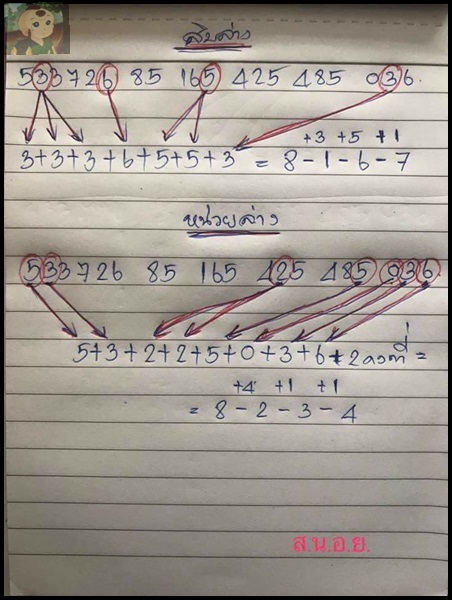 สิบล่าง
533726 85 165 425 485 036.
+3 +5 +1
3+3+3+6+5+5+3 = 8-1-6-7
หน่วยล่าง
533726 85 165 425 485 036
5+3+2+2+5+0+3+6+2คงที่ =
+4 +1 +1
= 8-2-3-4
ส.น.อ.ย.